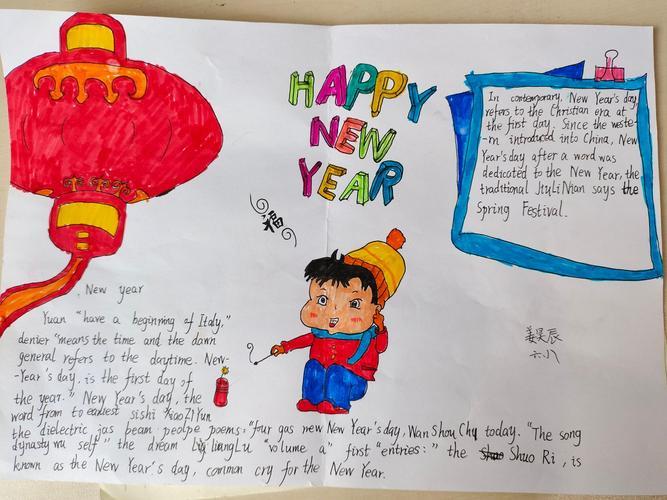 HAPPY
NEW
YEAR
In contemporary, New Year's day
refers to the Christian era at
the first day. Since the weste-
-rn introduced into China, New
Year's day after a word was
dedicated to the New Year, the
traditional JiuLiNian says the
Spring Festival.
福
姜昊辰
六.8
New year
Yuan "have a beginning of Italy,"
denier "means the time and the dawn
general refers to the daytime. New-
-Year's day, is the first day of
the year." New Year's day, the
word from to earliest sishi XiaoZiYun
the dielectric jas beam people poems: "four gas new New Year's day, Wan Shou Chu today. "The song
dynasty wu self" the dream LiangLu "volume a" first "entries:" the Shuo Ri, is
known as the New Year's day, common cry for the New Year.